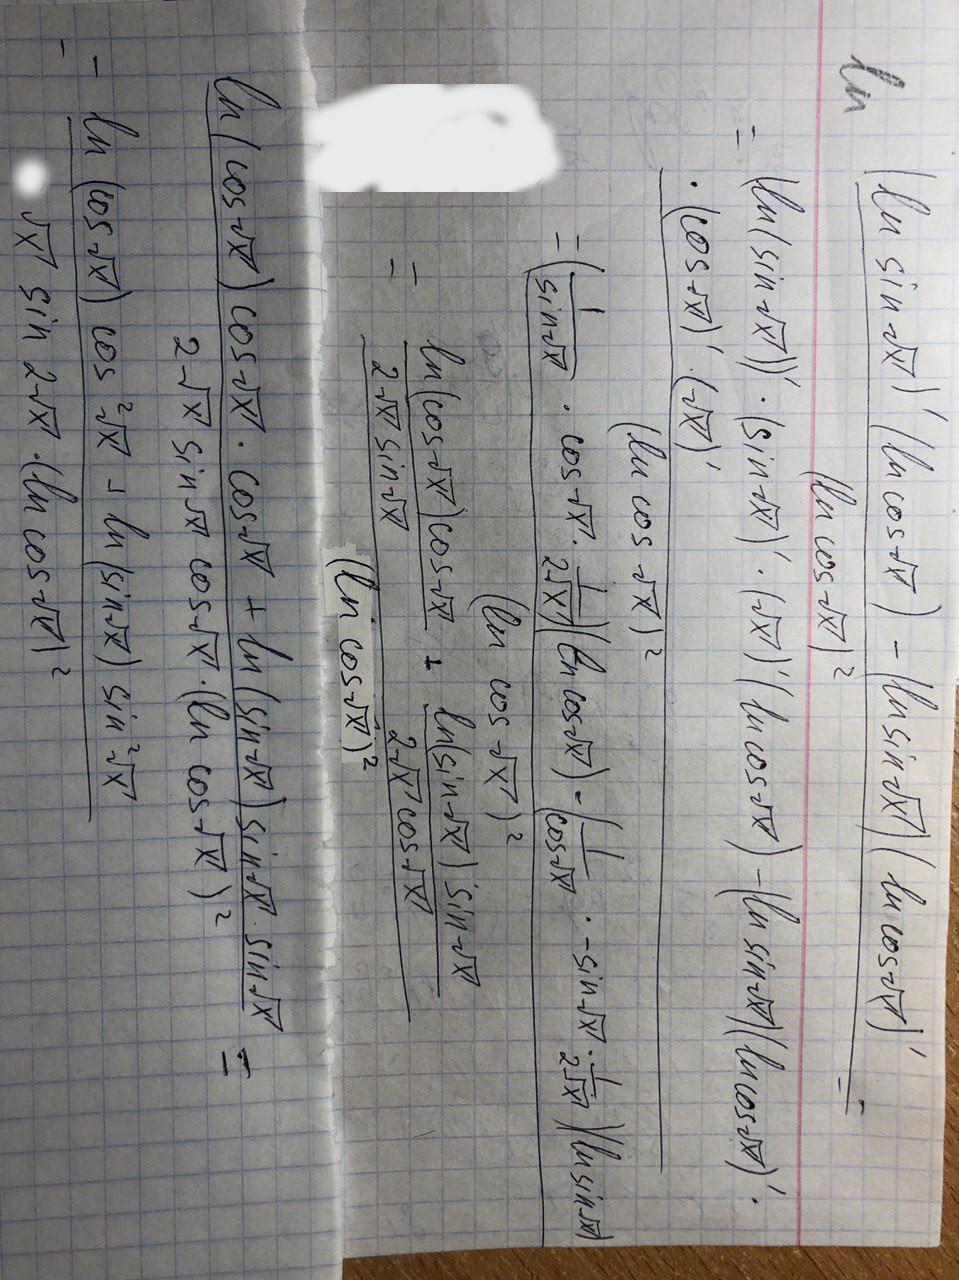 ln
(ln sin √x)' (ln cos √x) - (ln sin √x)(ln cos √x)' =
(ln cos √x)²
= (ln(sin √x))' · (sin √x)' · (√x)' (ln cos √x) - (ln sin √x)(ln cos √x)' ·
· (cos √x)' · (√x)'
(ln cos √x)²
= (1/sin √x · cos √x · 1/2√x)(ln cos √x) - (1/cos √x · -sin √x · 1/2√x)(ln sin √x)
(ln cos √x)²
= ln(cos √x) cos √x / 2√x sin √x + ln(sin √x) sin √x / 2√x cos √x
(ln cos √x)²
ln(cos √x) cos √x · cos √x + ln(sin √x) sin √x · sin √x =
2√x sin √x cos √x · (ln cos √x)²
= ln(cos √x) cos² √x - ln(sin √x) sin² √x
√x sin 2√x · (ln cos √x)²